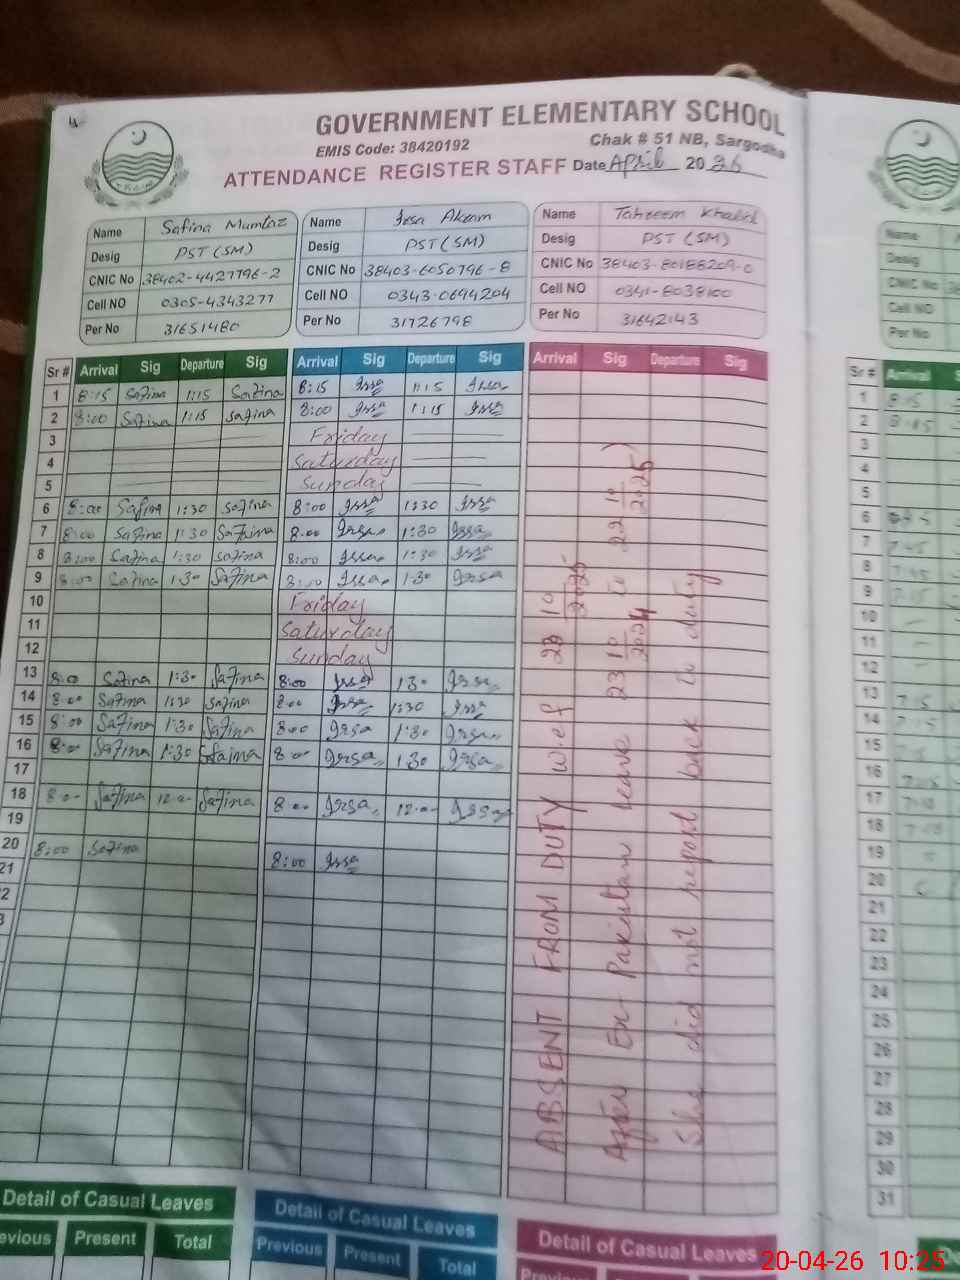 GOVERNMENT ELEMENTARY SCHOOL
EMIS Code: 38420192
Chak # 51 NB, Sargodha
ATTENDANCE REGISTER STAFF Date April 2026
Name Safina Mumtaz
Desig PST (SM)
CNIC No 38402-4427796-2
Cell NO 0305-4343277
Per No 31651480
Name Irsa Akram
Desig PST (SM)
CNIC No 38403-6050796-8
Cell NO 0343-0694204
Per No 31726798
Name Tahreem Khalid
Desig PST (SM)
CNIC No 38403-80188209-0
Cell NO 0341-8038100
Per No 31642143
Sr # Arrival Sig Departure Sig Arrival Sig Departure Sig Arrival Sig Departure Sig
1 8:15 Safina 1:15 Safina 8:15 Irsa 1:15 Irsa
2 8:00 Safina 1:15 Safina 8:00 Irsa 1:15 Irsa
3 Friday
4 Saturday
5 Sunday
6 8:00 Safina 1:30 Safina 8:00 Irsa 1:30 Irsa
7 8:00 Safina 1:30 Safina 8:00 Irsa 1:30 Irsa
8 8:00 Safina 1:30 Safina 8:00 Irsa 1:30 Irsa
9 8:00 Safina 1:30 Safina 8:00 Irsa 1:30 Irsa
10 Friday
11 Saturday
12 Sunday
13 8:00 Safina 1:30 Safina 8:00 Irsa 1:30 Irsa
14 8:00 Safina 1:30 Safina 8:00 Irsa 1:30 Irsa
15 8:00 Safina 1:30 Safina 8:00 Irsa 1:30 Irsa
16 8:00 Safina 1:30 Safina 8:00 Irsa 1:30 Irsa
17
18 8:00 Safina 12:00 Safina 8:00 Irsa 12:00 Irsa
19
20 8:00 Safina 8:00 Irsa
21
ABSENT FROM DUTY w.e.f 23 10 2025
After Ex-Pakistan leave 23 10 2024 to 22 10 2025)
She did not report back to duty
Detail of Casual Leaves
Present Total
Detail of Casual Leaves
Previous Present Total
Detail of Casual Leaves
Name
Desig
CNIC No
Cell NO
Per No
Sr # Arrival
1 8:15
2
3
4
5
6
7
8
9
10
11
12
13
14
15
16
17
18
19
20
21
22
23
24
25
26
27
28
29
30
31
20-04-26 10:25